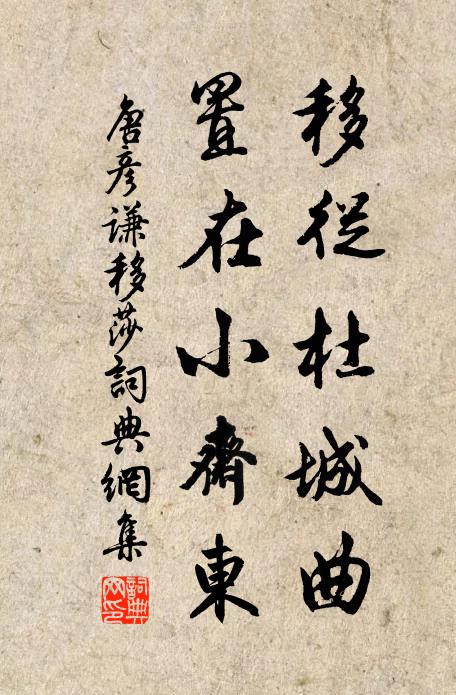 移從杜城曲
置在小齋東
唐彥謙移莎詞典網集
詞典
网印